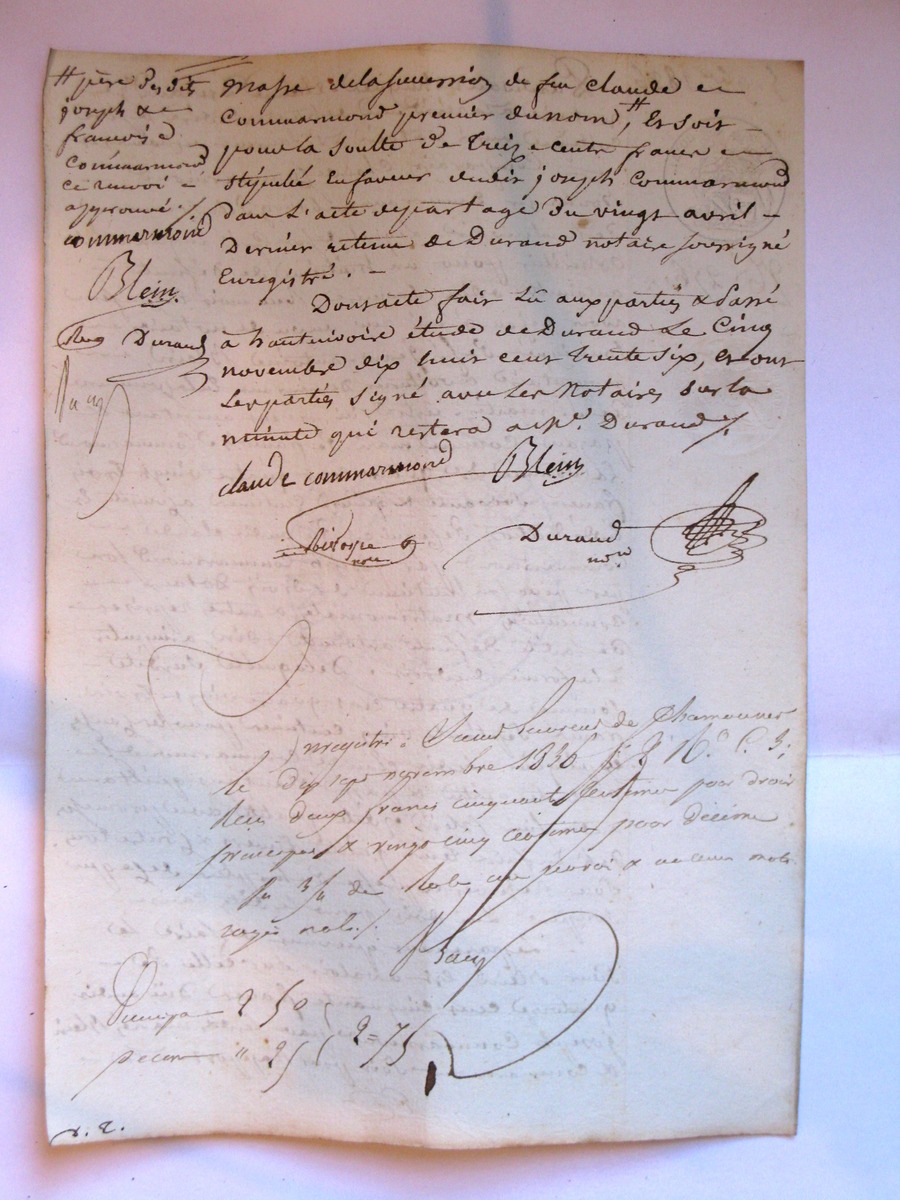 # père desdits
joseph &
francois
Commarmond
ce renvoi
approuvé ./.
Commarmond
Blein
Durand
masse de la succession de feu claude
Commarmond premier du nom #, Et soit
pour la soulte de Treize cents francs
stipulée En faveur dudit joseph Commarmond
dans L'acte de partage Du vingt avril
Dernier retenu de Durand notaire soussigné
Enregistré . -
Dont acte fait Lû aux parties & Passé
à hauterivoire étude de Durand Le Cinq
novembre dix huit cent trente six, et ont
Les parties signé avec Les Notaires Sur la
minute qui restera à Me. Durand ./.
claude commarmond Blein
nore
Durand
nore
Enregistré à Saint Laurent de Chamousset
le dix sept novembre 1836 fo 16 Ro C. 3;
Reçu deux francs cinquante Centimes pour droit
principal & vingt cinq centimes pour décime
de Rôle, un renvoi & aucun mots
rayés nuls ./.
Principal 2 50
2=75
Décime " 25